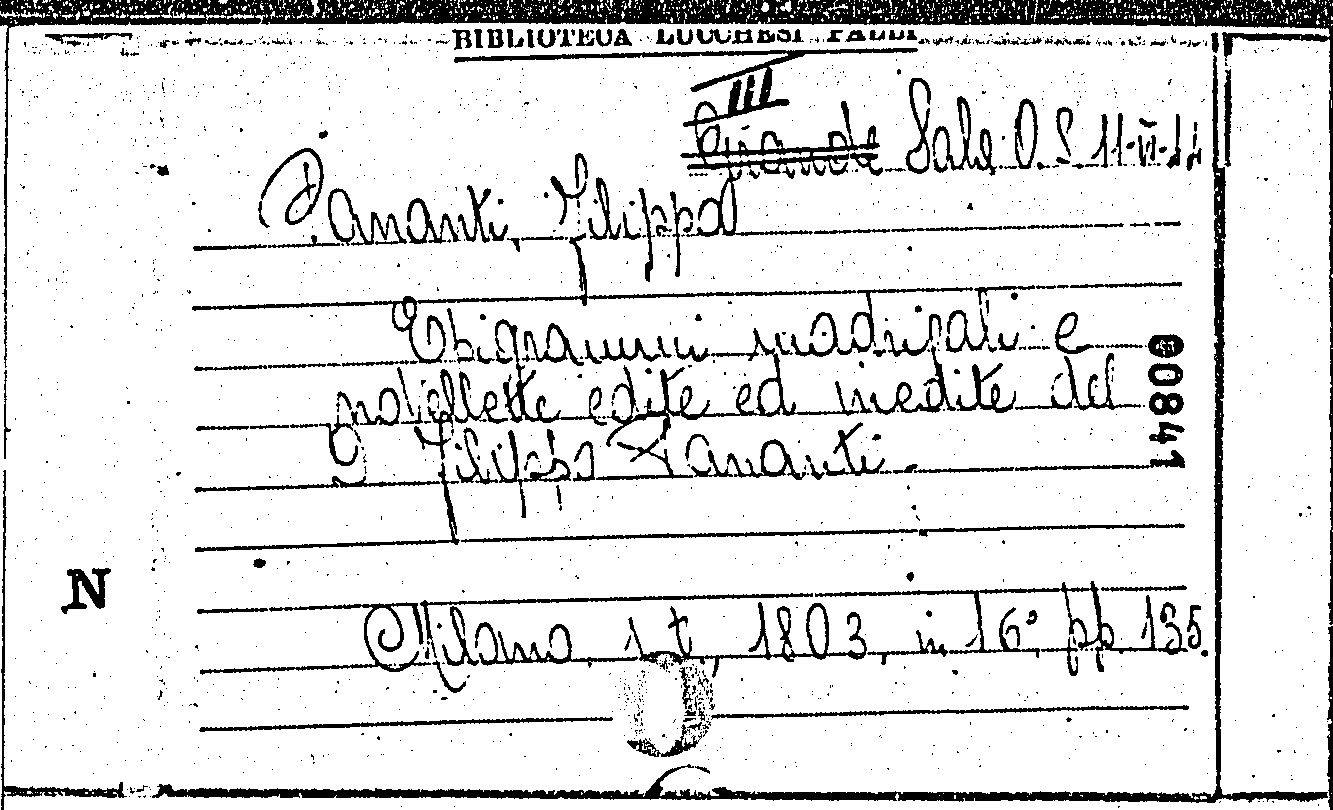 BIBLIOTECA LUCCHESI PALLI
III
Grande Sala O. S. 11-VI-
Pananti, Filippo
Epigrammi madrigali e
novellette edite ed inedite del
D Filippo Pananti.
00841
N
Milano, s. t., 1803, in 16°, pp 135.